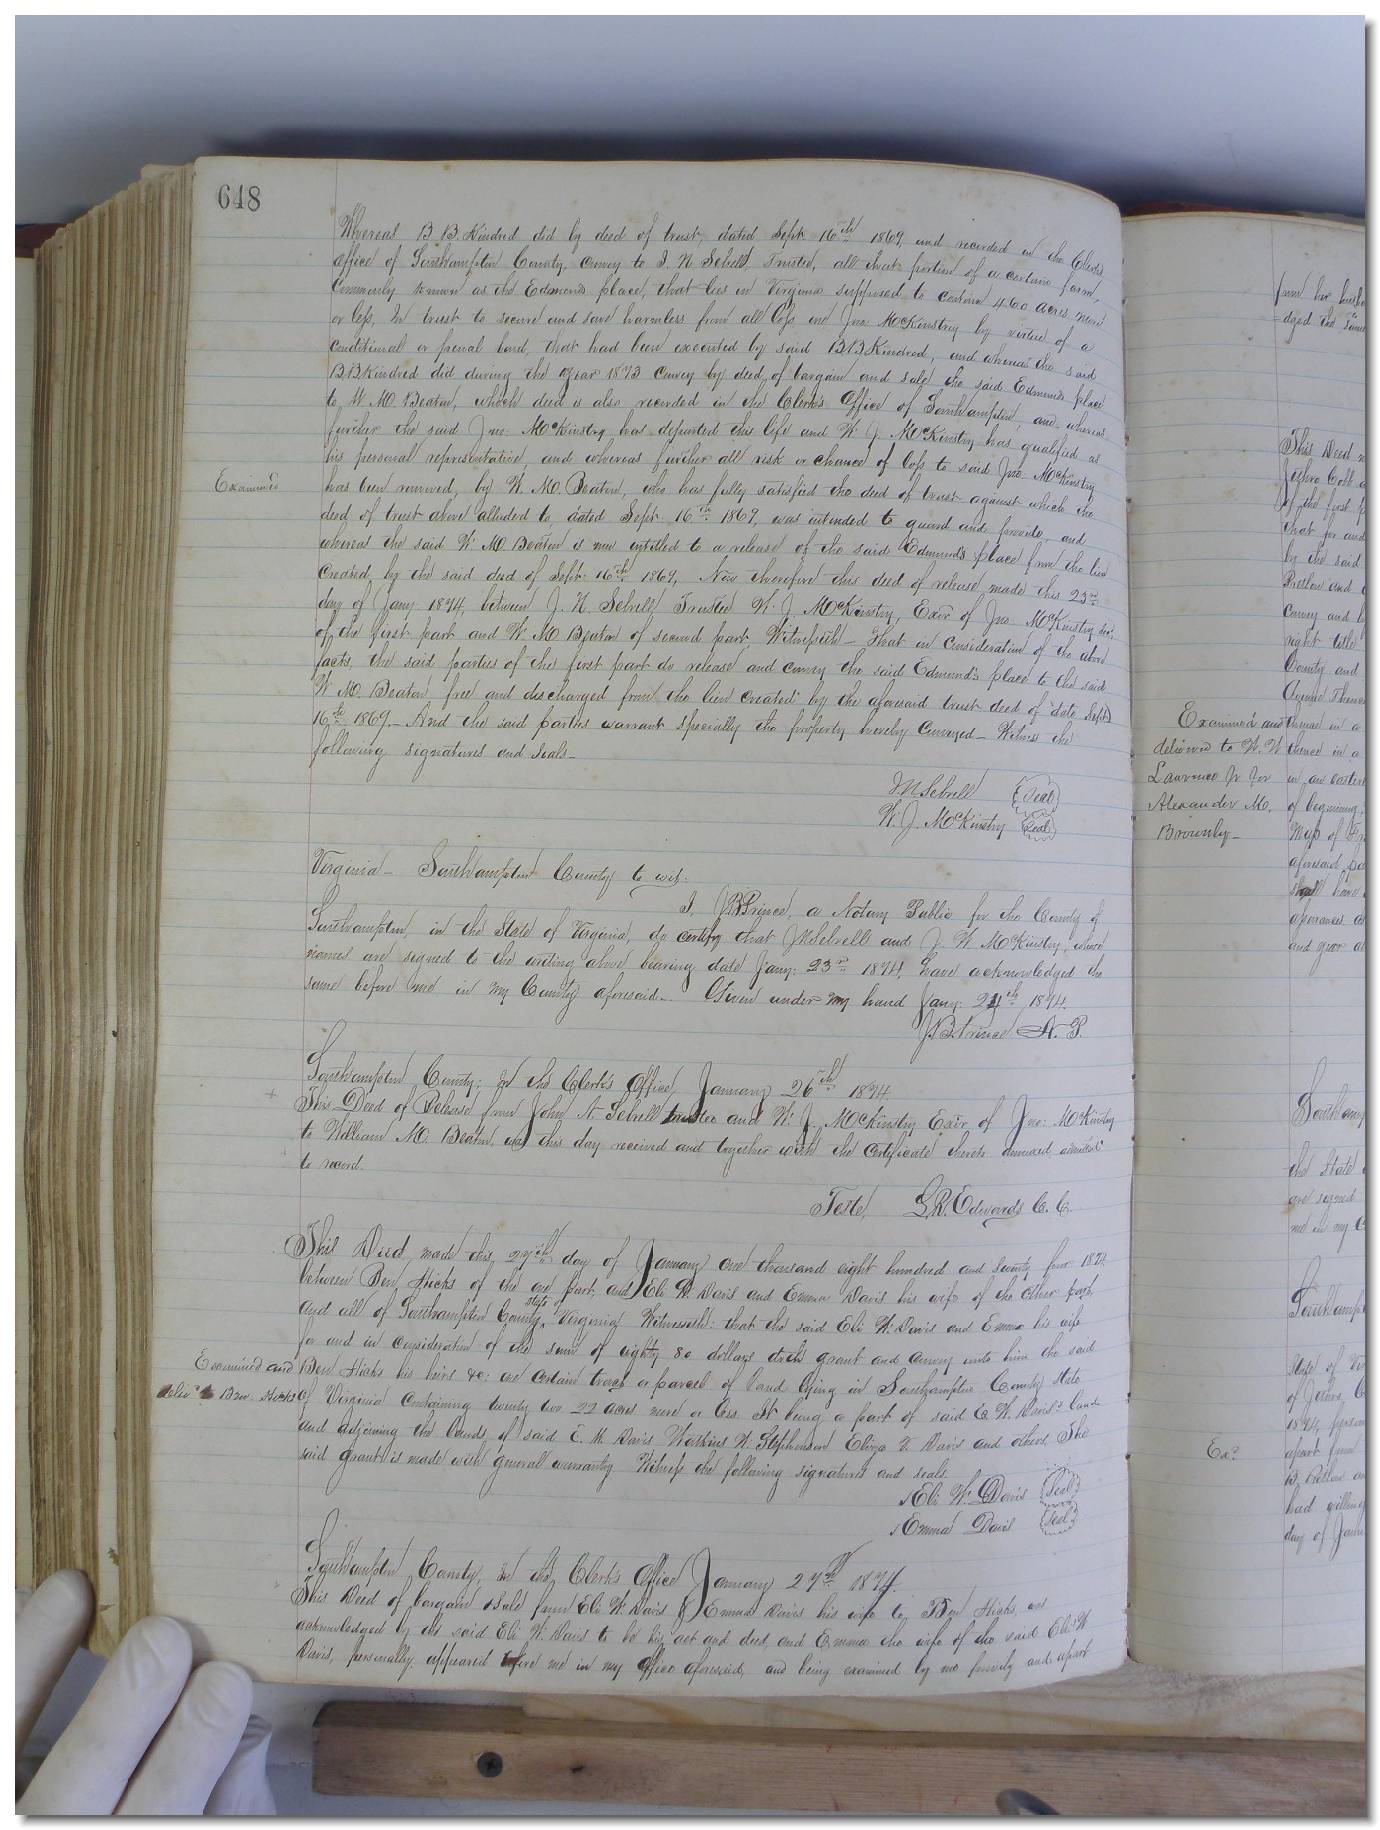 648
Whereas B. B. Kindred did by deed of trust, dated Sept 16th 1869, and recorded in the Clerks
Office of Southampton County, convey to J. N. Sebrell Trustee, all that portion of a certain farm,
Commonly known as the Edmunds place, that lies in Virginia supposed to contain 460 acres more
or less, In trust to secure and save harmless from all loss one Jno McKinstry by virtue of a
conditional or penal bond, that had been executed by said B B Kindred, and whereas the said
B. B Kindred did during the year 1873 convey by deed of bargain and sale the said Edmunds place
to W. M. Beaton, which deed is also recorded in the Clerk's Office of Southampton, and whereas
further the said Jno: McKinstry has departed this life and W. J. McKinstry has qualified as
his personal representative, and whereas further all risk or chance of loss to said Jno. McKinstry
Examined
has been removed, by W. M. Beaton, who has fully satisfied the deed of trust against which the
deed of trust above alluded to, dated Sept. 16th 1869, was intended to guard and provide, and
whereas the said W. M. Beaton is now entitled to a release of the said Edmund's place from the lien
created, by the said deed of Sept: 16th 1869, Now therefore this deed of release made this 23rd
day of Jany 1874, between J. N. Sebrell Trustee W. J. McKinstry, Exor of Jno McKinstry dec.
of the first part and W. M. Beaton of second part, Witnesseth— That in consideration of the above
facts, the said parties of the first part do release and convey the said Edmund's place to the said
W. M. Beaton free and discharged from the lien created by the aforesaid trust deed of date Sept
16th 1869.— And the said parties warrant specially the property hereby conveyed— Witness the
following signatures and seals—
J. N Sebrell (Seal)
W. J. McKinstry (Seal)
Virginia— Southampton County to wit:
I, J. B. Prince, a Notary Public for the County of
Southampton, in the State of Virginia, do certify that J. N Sebrell and J. W McKinstry, whose
names are signed to the writing above bearing date Jany: 23rd 1874, have acknowledged the
same before me in my County aforesaid.— Given under my hand Jany: 24th 1874.
J. B. Prince N. P.
Southampton County; In the Clerk's Office January 26th 1874.
This Deed of Release from John N Sebrell trustee and W. J. McKinstry Exor. of Jno: McKinstry
to William M. Beaton, was this day received and together with the certificate thereto annexed, admitted
to record.
Teste, L. R. Edwards C. C.
This Deed, made this 27th day of January one thousand eight hundred and seventy four 1874,
between Ben Hicks of the one part, and Eli W. Davis and Emma Davis his wife of the other part,
and all of Southampton County, state of Virginia Witnesseth: that the said Eli W. Davis and Emma his wife
for and in consideration of the sum of eighty 80 dollars doth grant and convey unto him the said
Examined and
Ben Hicks his heirs &c: one certain tract or parcel of land lying in Southampton County State
deliv'd to Ben Hicks
of Virginia containing twenty two 22 acres more or less. It being a part of said E. W. Davis's land
and adjoining the lands of said E. W. Davis Watkins W. Stephenson Eliza V. Davis and others. The
said grant is made with general warranty Witness the following signatures and seals.
Eli W. Davis (Seal)
Emma Davis (Seal)
Southampton County, In the Clerk's Office January 27th 1874.
This Deed of bargain & Sale from Eli W. Davis & Emma Davis his wife to Ben Hicks, was
acknowledged by the said Eli W. Davis to be his act and deed, and Emma the wife of the said Eli W
Davis, personally appeared before me in my office aforesaid, and being examined by me privily and apart
from her husba
dged the same
This Deed
Jethro Cobb a
of the first p
that for and
by the said
Pretlow and
convey and
right title
County and
Examined and
delivered to W. W
Lawrence Jr for
Alexander M.
Brownly—
thence in a
thence in a
in an easter
of beginning,
Map of
aforesaid
shall have
and year
Southamp
the State
are signed
me in my C
Southamp
State of Vi
1874, person
apart from
Exd
had willing
day of Janu